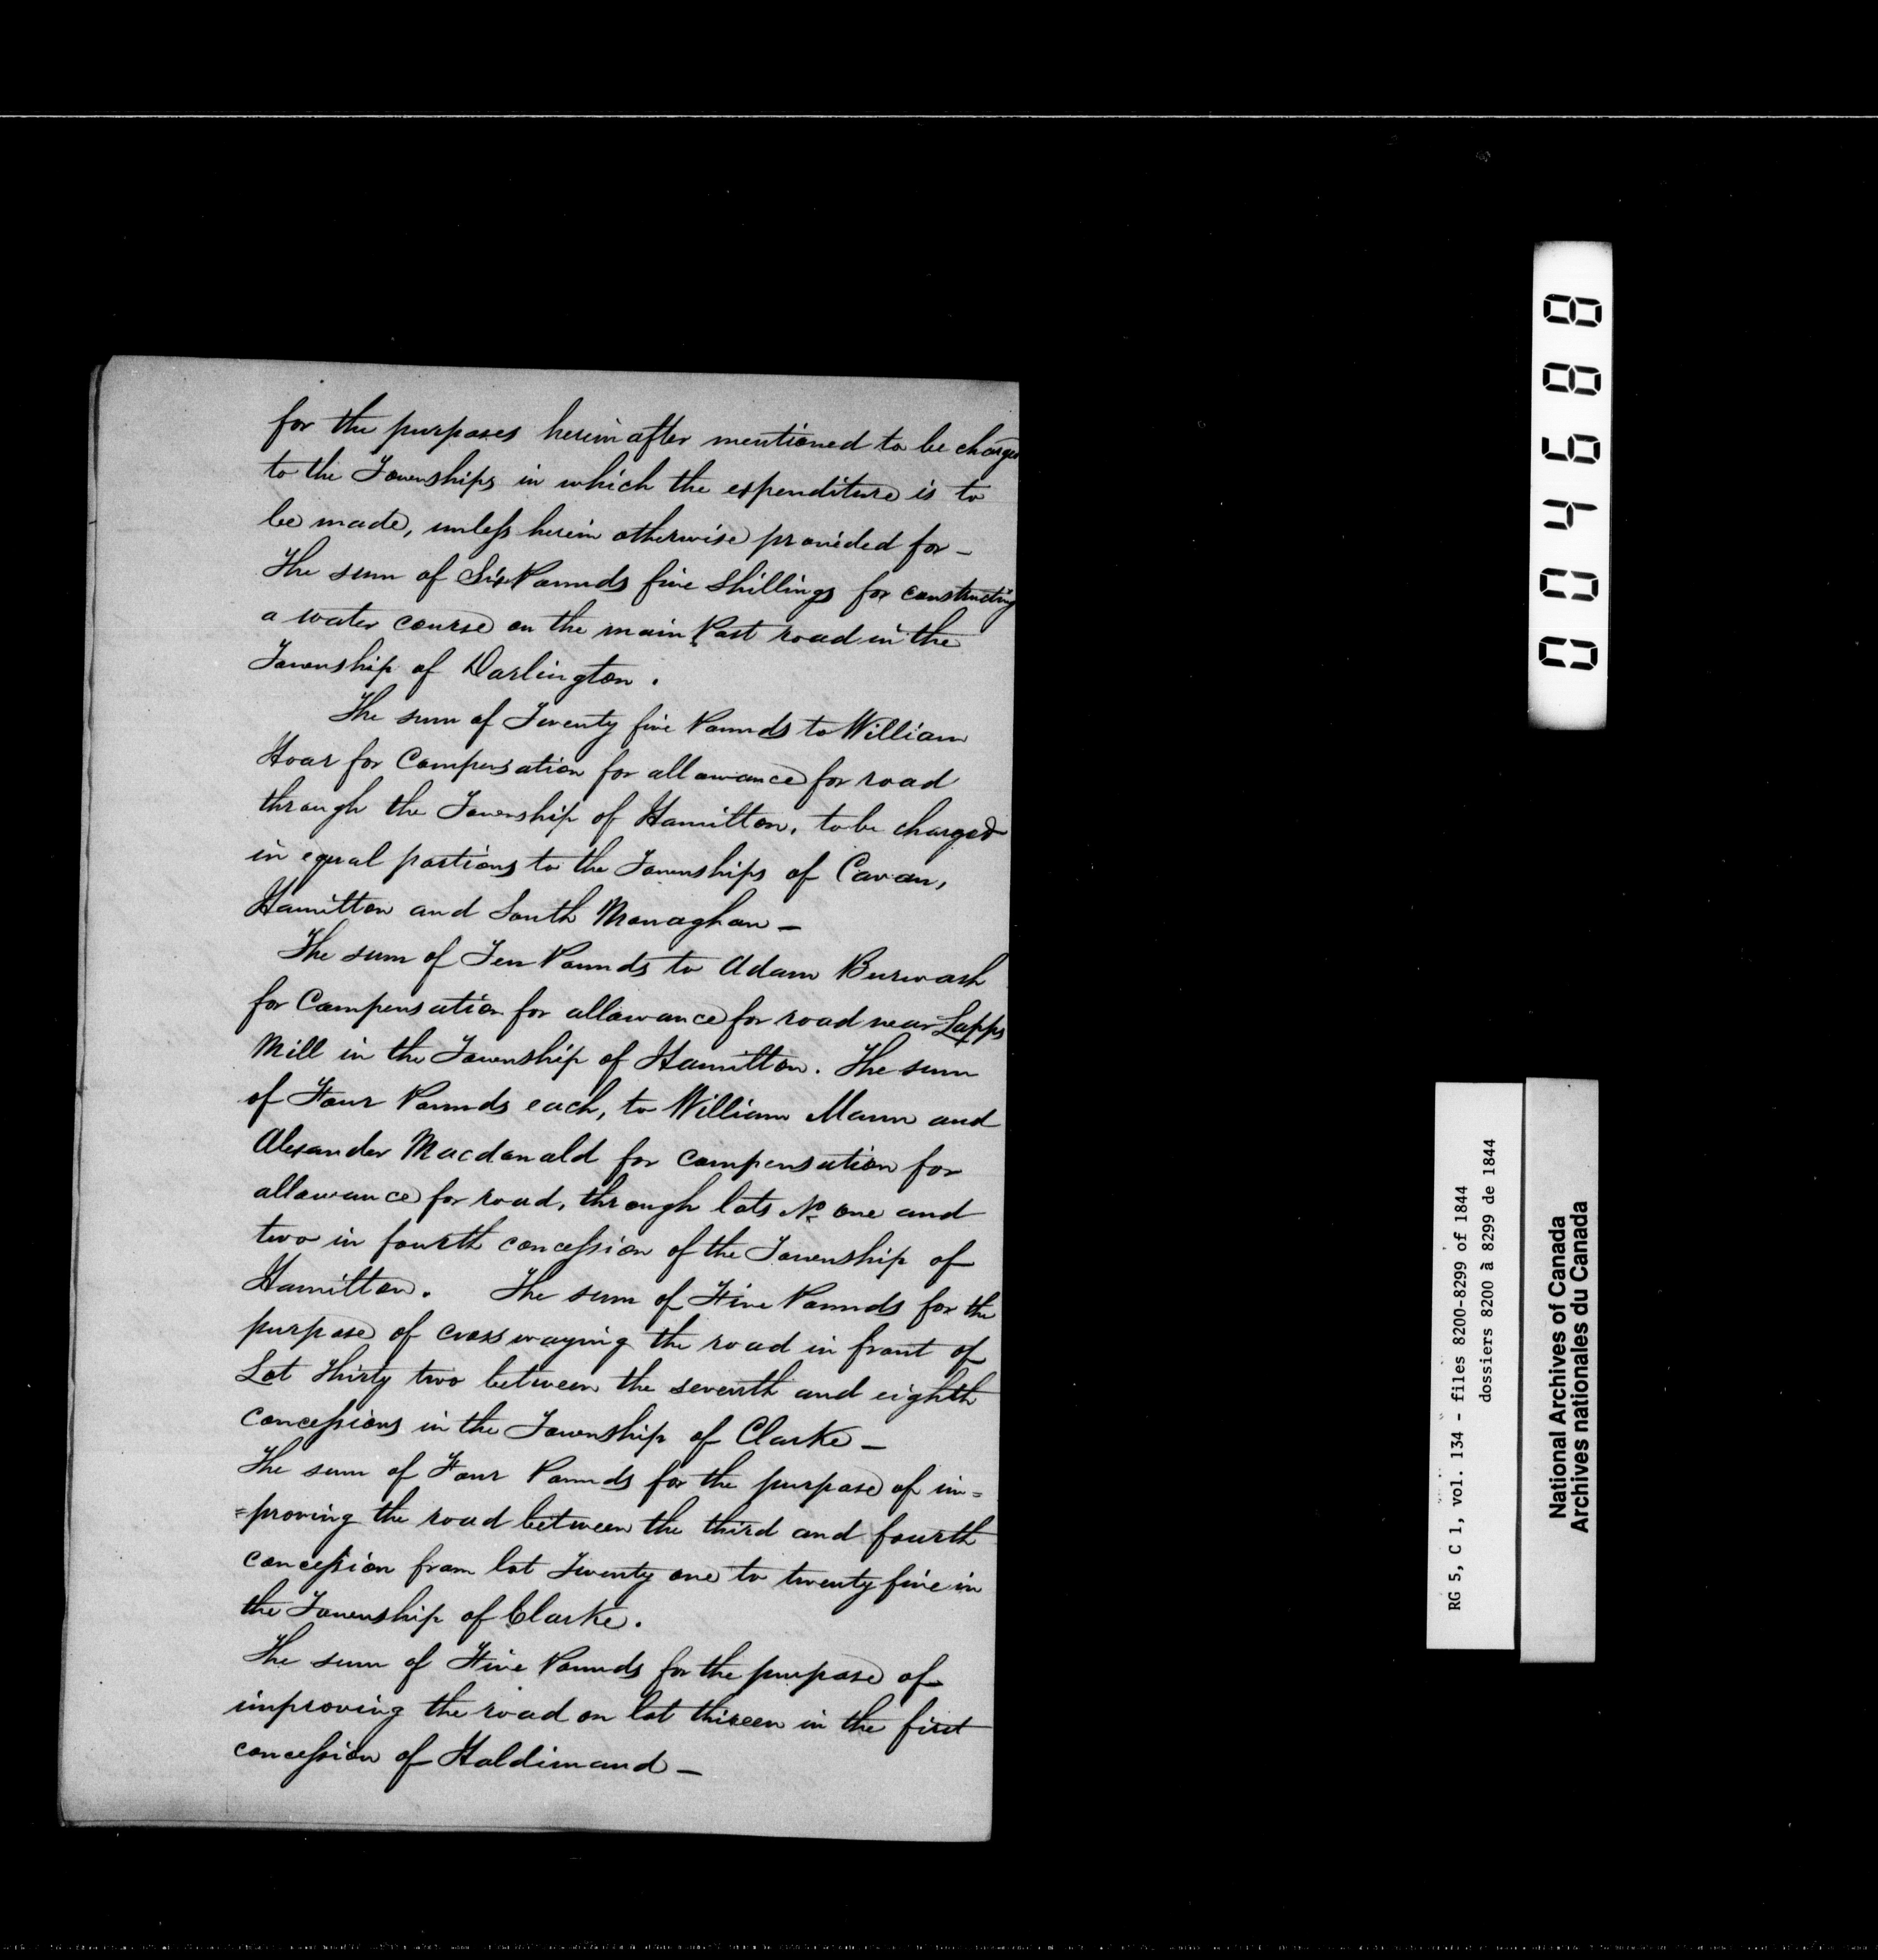 for the purposes hereinafter mentioned to be charged
to the Townships in which the expenditure is to
be made, unless herein otherwise provided for –
The sum of Six Pounds five Shillings for constructing
a water course on the main Post road in the
Township of Darlington.
The sum of Twenty five Pounds to William
Hoar for Compensation for allowance for road
through the Township of Hamilton, to be charged
in equal portions to the Townships of Cavan,
Hamilton and South Monaghan –
The sum of Ten Pounds to Adam Burwash
for Compensation for allowance for road near Lapps
Mill in the Township of Hamilton. The sum
of Four Pounds each, to William Mann and
Alexander Macdonald for compensation for
allowance for road, through lots No one and
two in fourth concession of the Township of
Hamilton. The sum of Five Pounds for the
purpose of crosswaying the road in front of
Lot Thirty two between the seventh and eighth
concessions in the Township of Clarke –
The sum of Four Pounds for the purpose of im=
=proving the road between the third and fourth
concession from lot Twenty one to twenty five in
the Township of Clarke.
The sum of Five Pounds for the purpose of
improving the road on lot thireen in the first
concession of Haldimand –
004688
RG 5, C 1, vol. 134 - files 8200-8299 of 1844
dossiers 8200 à 8299 de 1844
National Archives of Canada
Archives nationales du Canada